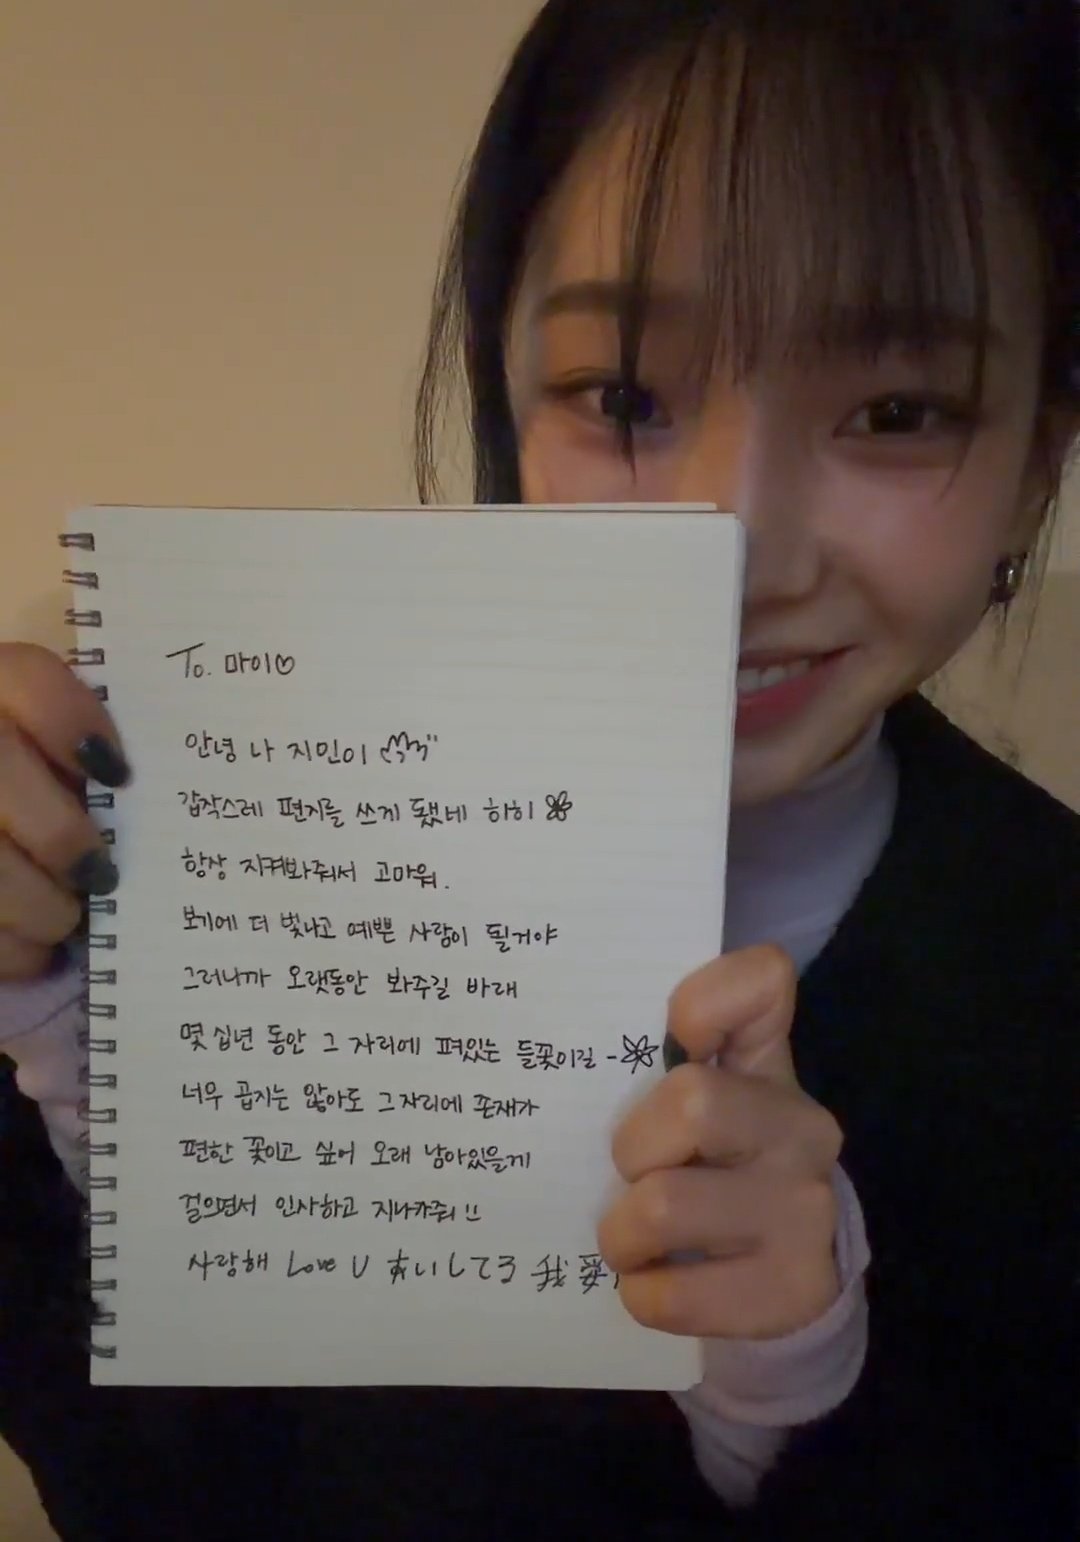 To. 마이♡
안녕 나 지민이
갑작스레 편지를 쓰게 됐네 히히
항상 지켜봐줘서 고마워.
보기에 더 빛나고 예쁜 사람이 될거야
그러니까 오랫동안 봐주길 바래
몇 십년 동안 그 자리에 펴있는 들꽃이길 -
너무 곱지는 않아도 그 자리에 존재가
편한 꽃이고 싶어 오래 남아있을게
걸으면서 인사하고 지나가줘!!
사랑해 Love U あいしてる 我爱